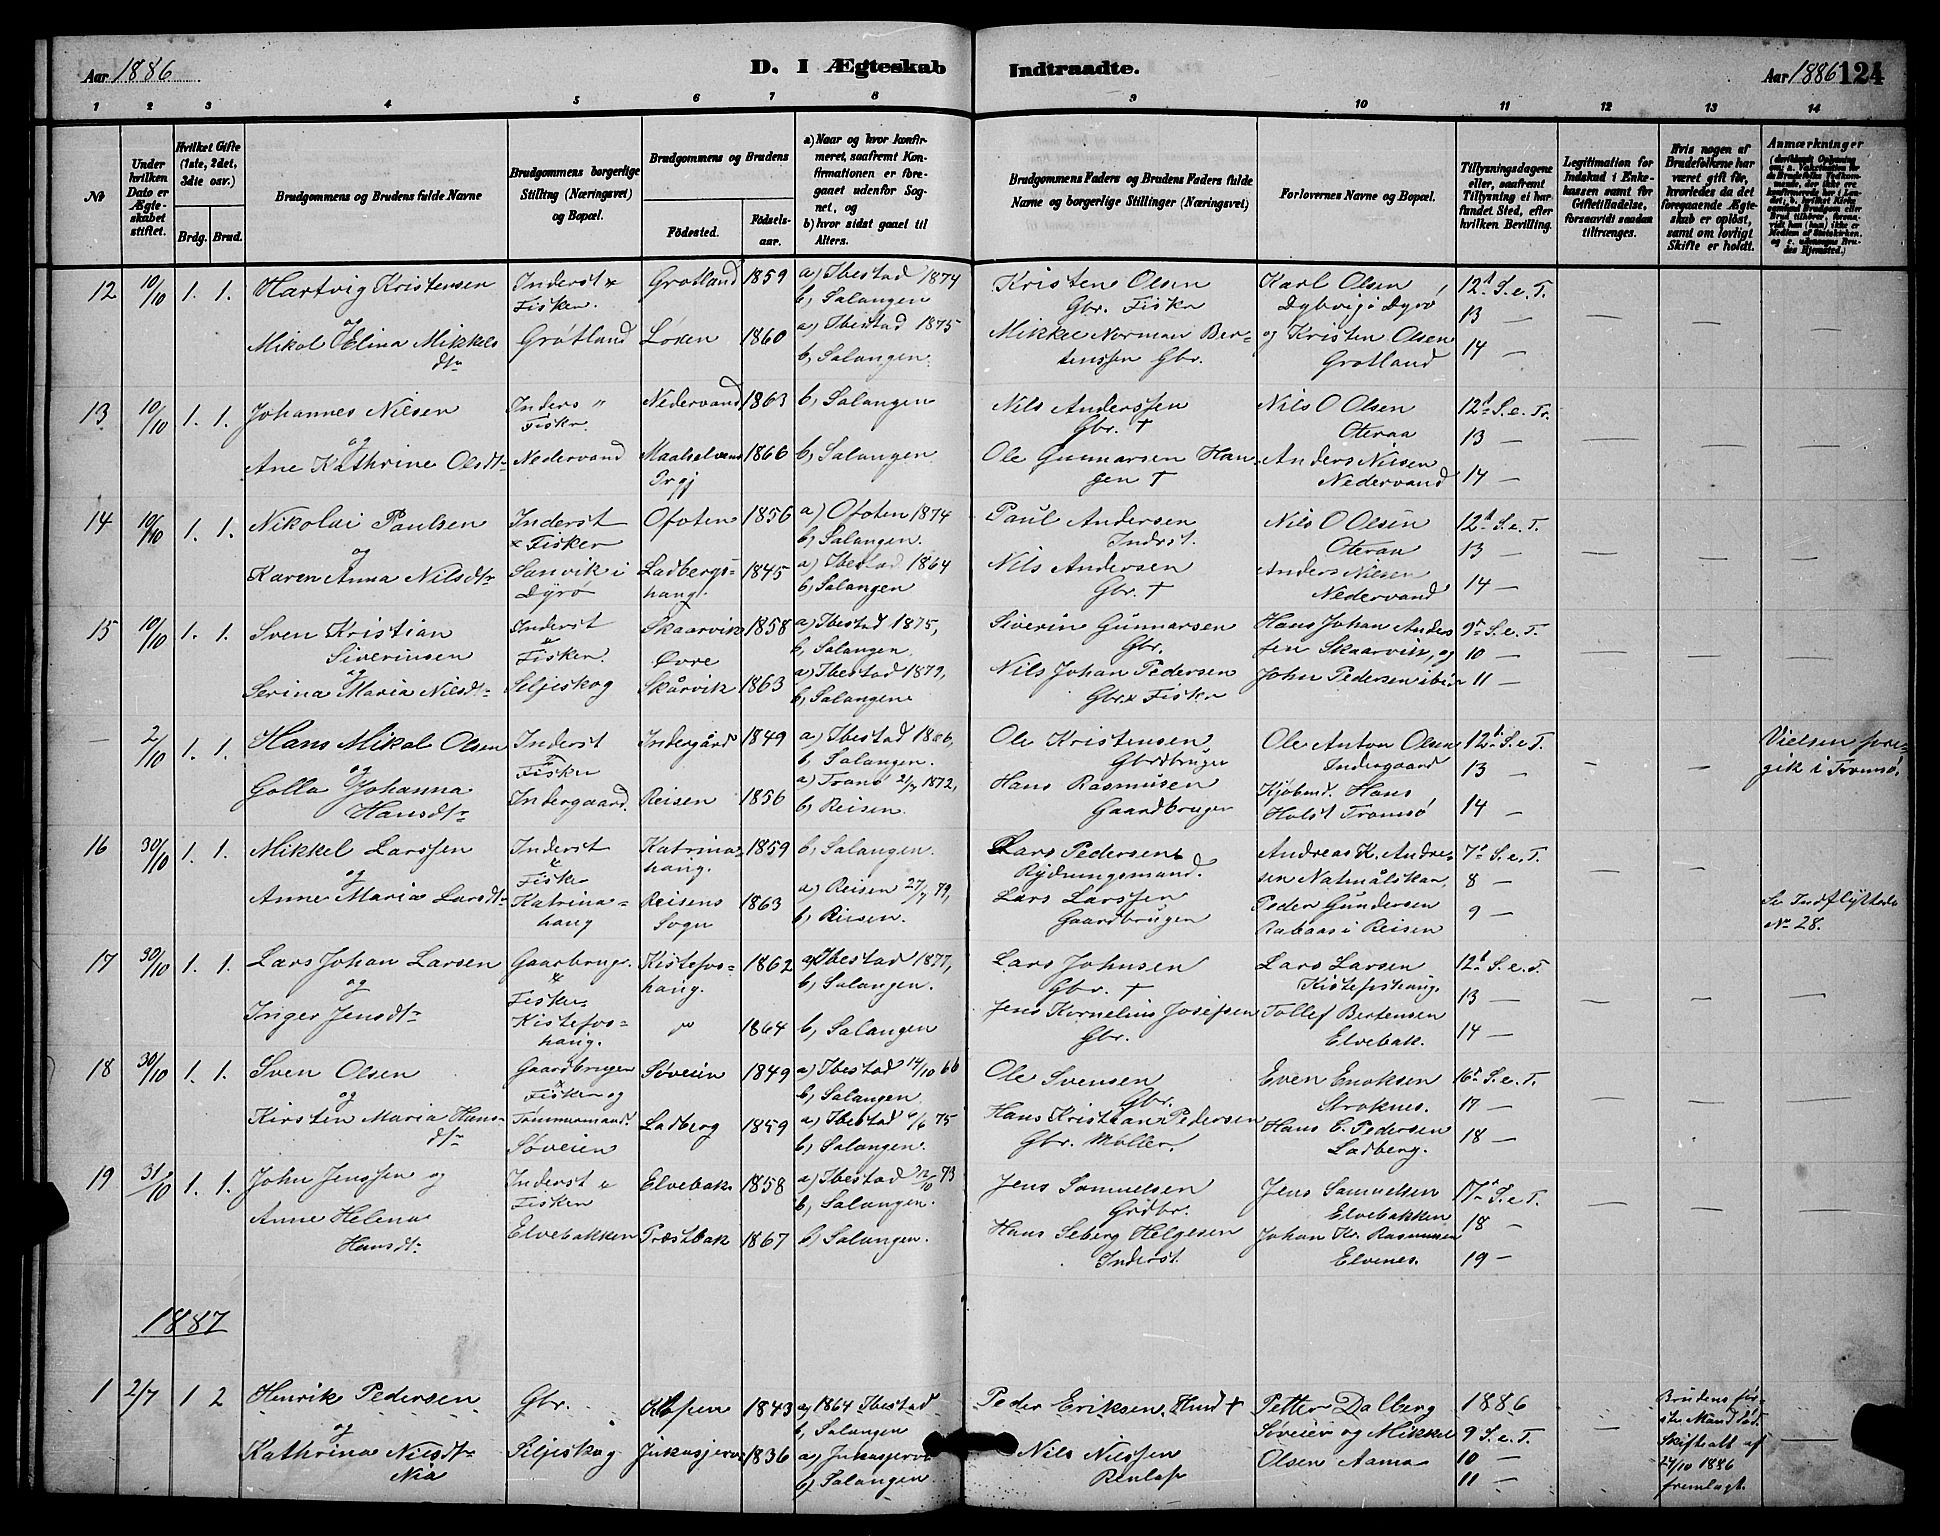 Aar 1886
D. I Ægteskab Indtraadte.
Aar 1886 124
1 2 3 4 5 6 7 8 9 10 11 12 13 14
№
Under hvilken Dato er Ægteskabet stiftet.
Hvilket Gifte (1ste, 2det, 3die osv.)
Brdg. Brud.
Brudgommens og Brudens fulde Navne
Brudgommens borgerlige Stilling (Næringsvei) og Bopæl.
Brudgommens og Brudens
Fødested.
Fødselsaar.
a) Naar og hvor konfirmeret, saafremt Konfirmationen er foregaaet udenfor Sognet, og
b) hvor sidst gaaet til Alters.
Brudgommens Faders og Brudens Faders fulde Navne og borgerlige Stillinger (Næringsvei)
Forlovernes Navne og Bopæl.
Tillysningsdagene eller, saafremt Tillysning ei har fundet Sted, efter hvilken Bevilling.
Legitimation for Indskud i Enkekassen samt for Giftetilladelse, forsaavidt saadan tiltrænges.
Hvis nogen af Brudefolkene har været gift før, hvorledes da det foregaaende Ægteskab er opløst, samt om lovligt Skifte er holdt.
Anmærkninger
12 10/10 1. 1. Hartvig Kristensen Inderst & Grotland 1859 a) Ibestad 1874 Kristen Olsen Karl Olsen 12te S. e. T.
Fisker. b, Salangen Gbr. Fiskr Dybvig i Dyrø 13 —
og
Mikol Elina Mikkels Grøtland Løsen 1860 a) Ibestad 1875 Mikkel Norman Ber- og Kristen Olsen 14 —
dtr b, Salangen. tenssen Gbr. Grotland
13 10/10 1. 1. Johannes Nilsen Inders " Nedervand 1863 b, Salangen Nils Anderssen Nils O Olsen 12te S. e. Tr.
Fiskr. Gbr. † Oteraa 13 —
og
Ane Kathrine Olsdtr Nedervand Maalselvens 1866 b, Salangen. Ole Gunnarsen Han- Anders Nilsen 14 —
Prgj gen † Nedervand
14 10/10 1. 1. Nikolai Paulsen Inderst Ofoten 1856 a) Ofoten 1874 Paul Andersen Nils O Olsen 12te S. e. T.
& Fisker b, Salangen. Indrst. Oteraa 13 —
og
Karen Anna Nilsdtr Sanvik i Ladbergs- 1845 a) Ibestad 1864 Nils Andersen Anders Nilsen 14 —
Dyrø hang. b, Salangen Gbr. † Nedervand
15 10/10 1. 1. Sven Kristian Inderst Skaarvik 1858 a) Ibestad 1875, Siverin Gunnarsen Hans Johan Anders 9de S. e. T.
Siverinsen & Fisker. Øvre b, Salangen. Gbr. sen Skaarvik, og 10 —
og
Serina Maria Nilsdtr Seljeskog Skårvik 1863 a) Ibestad 1879, Nils Johan Pedersen John Pedersen ibid 11 —
b, Salangen Gbr. & Fiskr
— 2/10 1. 1. Hans Mikal Olsen Inderst Indergård 1849 a) Ibestad Ole Kristensen Ole Anton Olsen 12te S. e. T. Vielsen fore-
& Fisker b, Salangen. Gbrdbruger Indergaard 13 — gik i Tromsø.
og
Golla Johanna Indergaard. Reisen 1856 a) Tranø 2/7 1872, Hans Rasmusen Kjøbmd. Hans
Hansdtr b) Reisen. Gaardbruger Holst Tromsø 14 —
16 30/10 1. 1. Mikkel Larssen Inderst Katrina- 1859 b, Salangen. Lars Pedersen Andreas K. Andre- 7de S. e. T.
& Fiske hang. Rydningsmand. sen Natmålskar, 8 —
og
Anne Maria Larsdtr Katrina- Reisens 1863 a) Reisen 27/7 79, Lars Larssen Peder Gundersen 9 — Se Indflyttede
hang Sogn b, Reisen. Gaardbrugen Rabaas i Reisen No 28.
17 30/10 1. 1. Lars Johan Larsen Gaarbrugr. Kistefos- 1862 a) Ibestad 1877, Lars Johnsen Lars Larsen 12te S. e. T.
& Fisker hang. b, Salangen. Gbr. † Kistefoshang. 13 —
og
Inger Jensdtr Kistefos- " 1864 b, Salangen Jens Kornelius Josefsen Tollef Bertensen 14 —
hang. Gbr. Elvebak.
18 30/10 1. 1. Sven Olsen Gaardbruger Søveien 1849 a) Ibestad 14/10 66 Ole Svensen Even Enoksen 16de S. e. T.
& Fisker og b, Salangen. Gbr. Stroknes. 17 —
og
Kirsten Maria Hans- Tømmermand. Ladberg 1859 a) Ibestad 6/6 75 Hans Kristian Pedersen Hans E. Pedersen 18 —
dtr Søveien b, Salangen. Gbr. Møller. Ladberg.
19 31/10 1. 1. John Jenssen og Inderst & Elvebak 1858 a) Ibestad 12/10 73 Jens Samuelsen Jens Samuelsen 17de S. e. T.
Fisker b, Salangen. Grdbr. Elvebakken 18 —
Anne Helena Elvebakken Præstbak 1867 b) Salangen. Hans Seberg Helgesen Johan Kr. Rasmussen
Hansdtr Inderst. Elvenes. 19 —
1887
1 2/7 1 2 Henrik Pedersen Gbr. 1843 a) 1864 Ibestad Peder Eriksen Hund † Petter Dalberg 1886 Brudens før-
b, Salangen Søveien og Mikkel 9 S. e. T. ste Mand død.
og
Kathrina Nilsdtr Seljeskog Jukasjervi 1836 a) Jukasjervi Nils Nilssen Olsen Aama 10 — Skifteatt af 24/10 1886
Nia b) Salangen Renlap 11 — fremlagt.